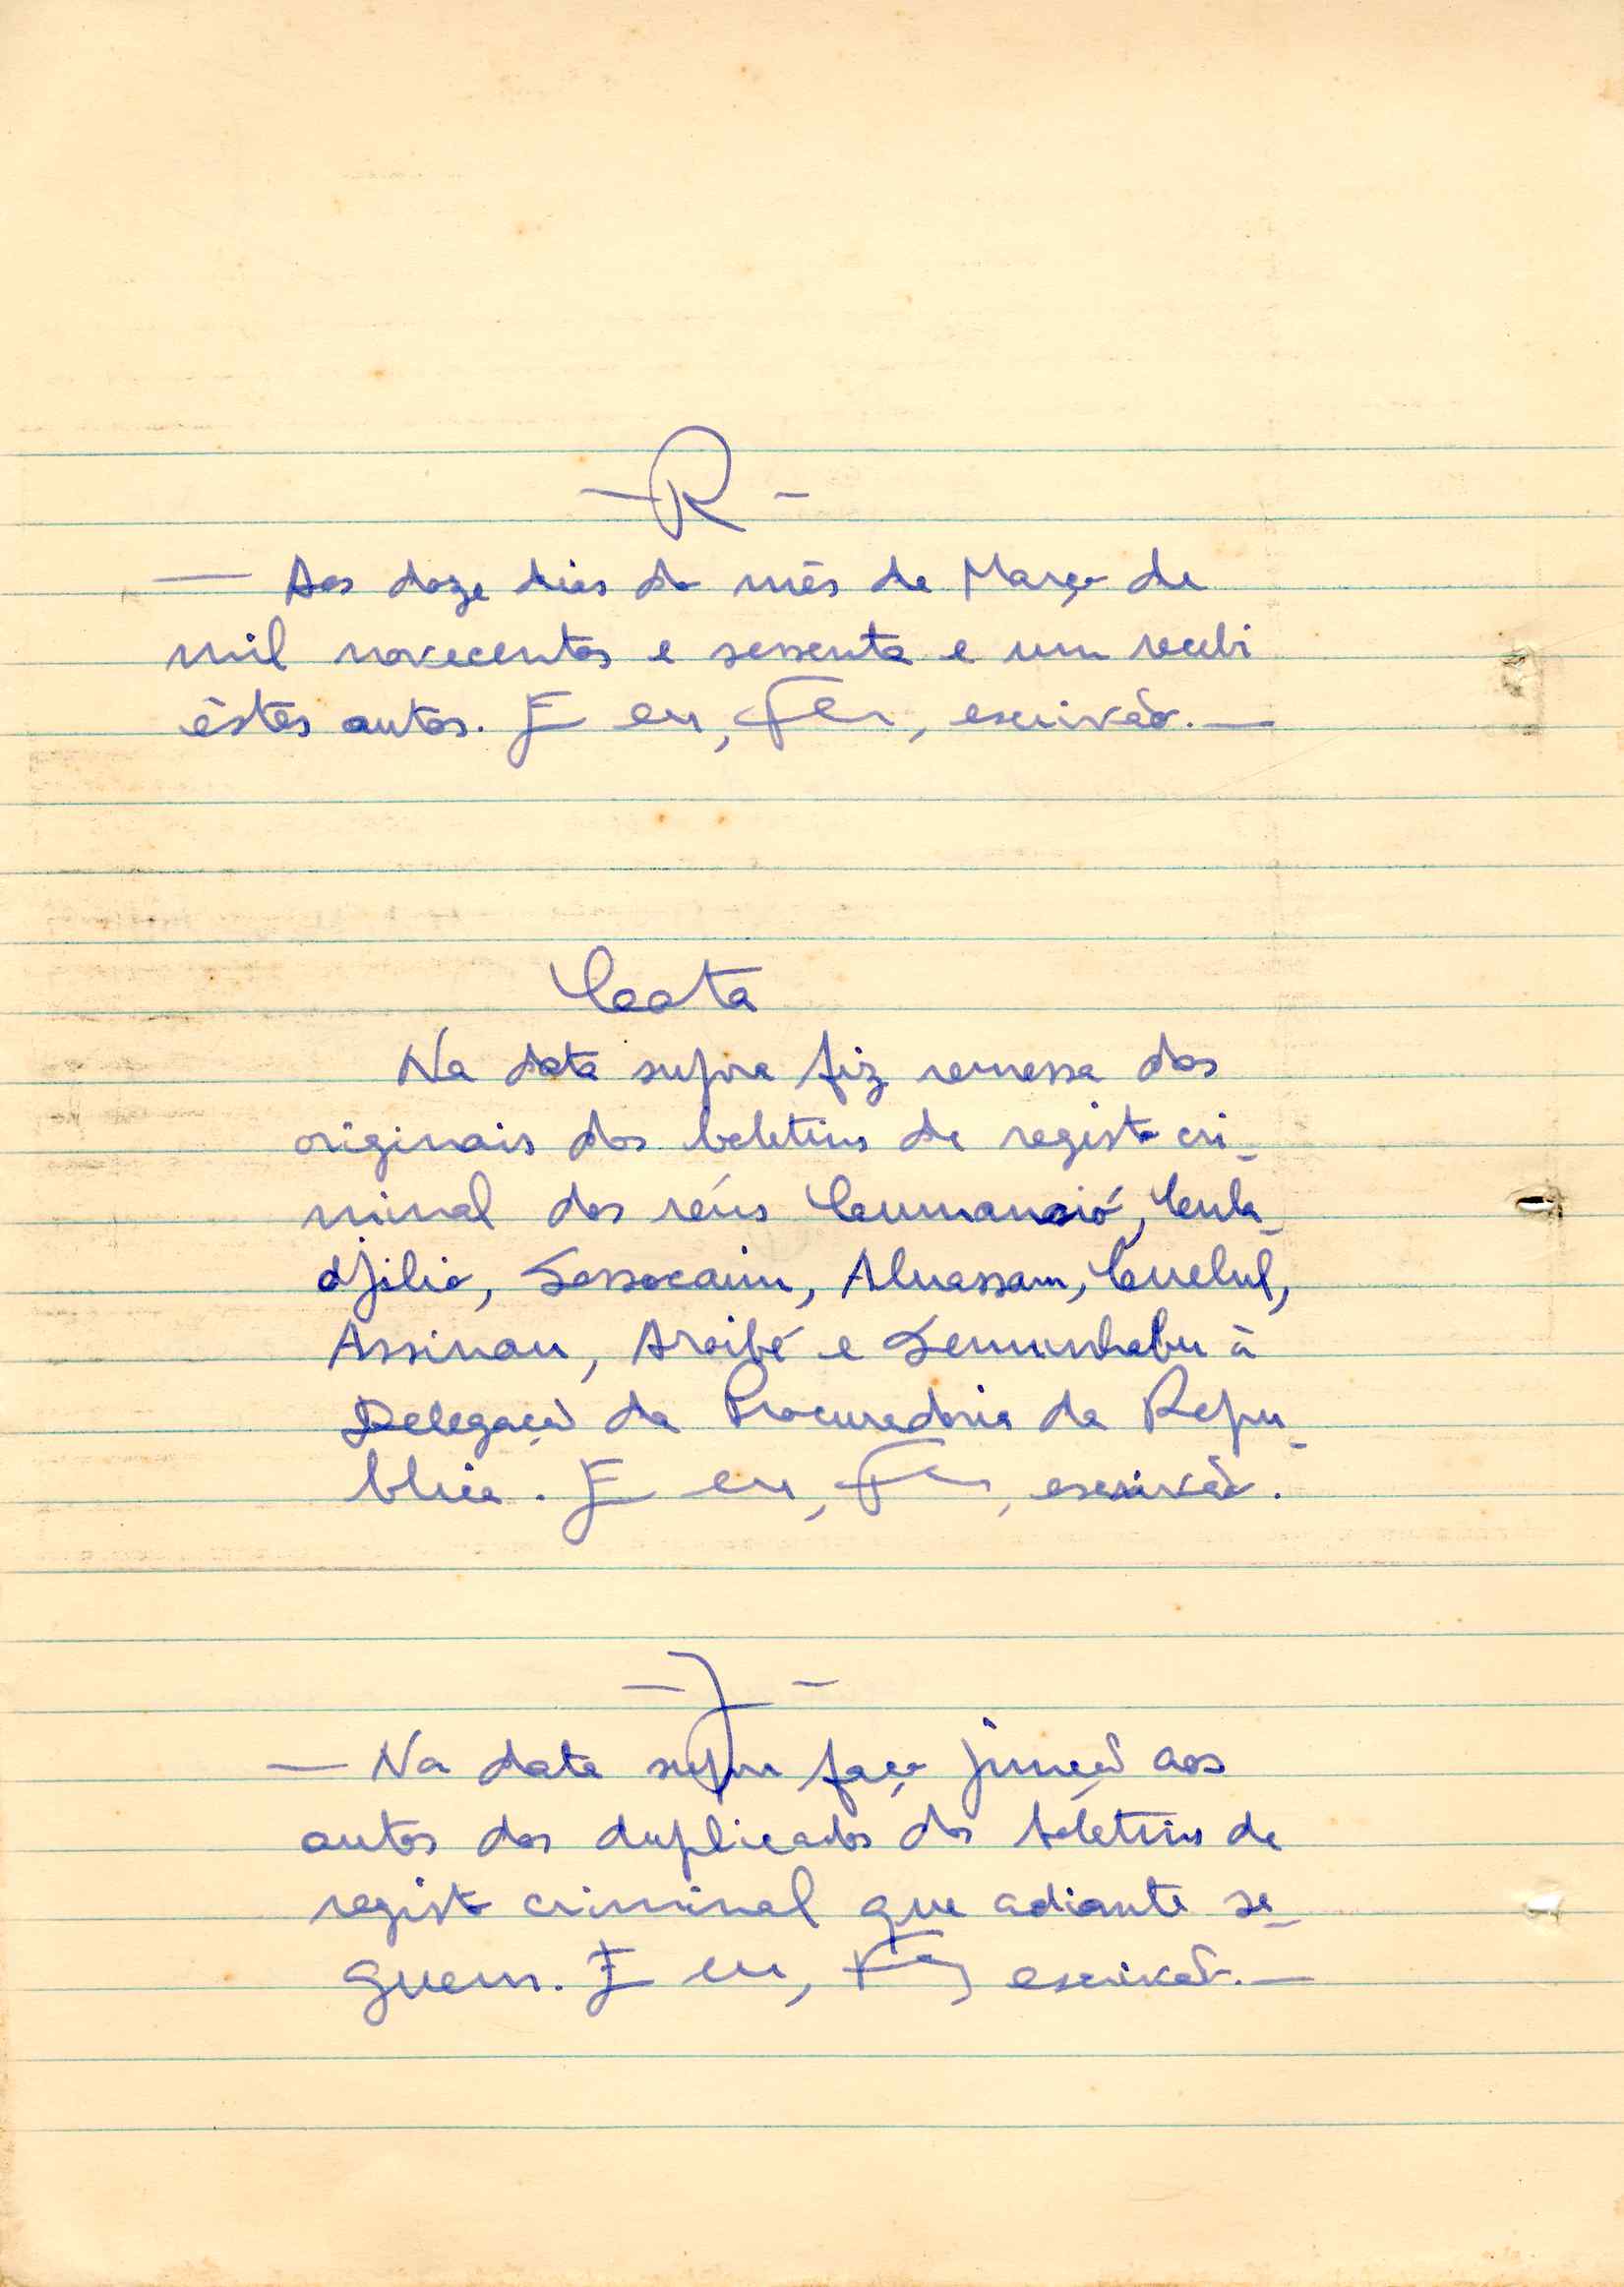 — R —
— Aos doze dias do mês de Março de
mil novecentos e sessenta e um recebi
êstes autos. E eu, , escrivão. —
Cota
Na data supra fiz remessa dos
originais dos boletins de registo cri-
minal dos réus
Assinau, Araibé e à
Delegação da Procuradoria da Repu-
blica. E eu, , escrivão.
— J —
— Na data supra faço junção aos
autos dos duplicados dos boletins de
registo criminal que adiante se-
guem. E eu, , escrivão. —